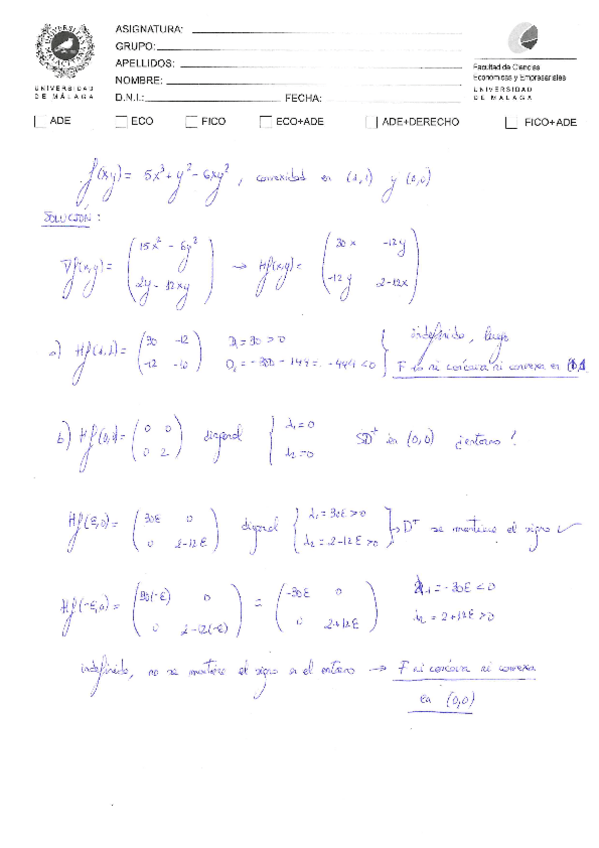 ASIGNATURA:
GRUPO:
APELLIDOS:
NOMBRE:
D.N.I.: FECHA:
UNIVERSIDAD
DE MÁLAGA
Facultad de Ciencias
Económicas y Empresariales
UNIVERSIDAD
DE MÁLAGA
ADE ECO FICO ECO+ADE ADE+DERECHO FICO+ADE
f(x,y) = 5x³ + y² - 6xy², convexidad en (1,1) y (0,0)
SOLUCIÓN:
∇f(x,y) = (15x² - 6y² ; 2y - 12xy) → Hf(x,y) = (30x -12y ; -12y 2-12x)
a) Hf(1,1) = (30 -12 ; -12 -10) D₁ = 30 > 0
= -300 - 144 = -444 < 0
indefinido, luego
F es ni cóncava ni convexa en (1,1)
b) Hf(0,0) = (0 0 ; 0 2) diagonal λ₁ = 0
λ₂ = 0
SD⁺ en (0,0) ¿entorno?
Hf(ε,0) = (30ε 0 ; 0 2-12ε) diagonal λ₁ = 30ε > 0
λ₂ = 2-12ε > 0
→ D⁺ se mantiene el signo ✓
Hf(-ε,0) = (30(-ε) 0 ; 0 2-12(-ε)) = (-30ε 0 ; 0 2+12ε) λ₁ = -30ε < 0
λ₂ = 2+12ε > 0
indefinido, no se mantiene el signo en el entorno → F ni cóncava ni convexa
en (0,0)